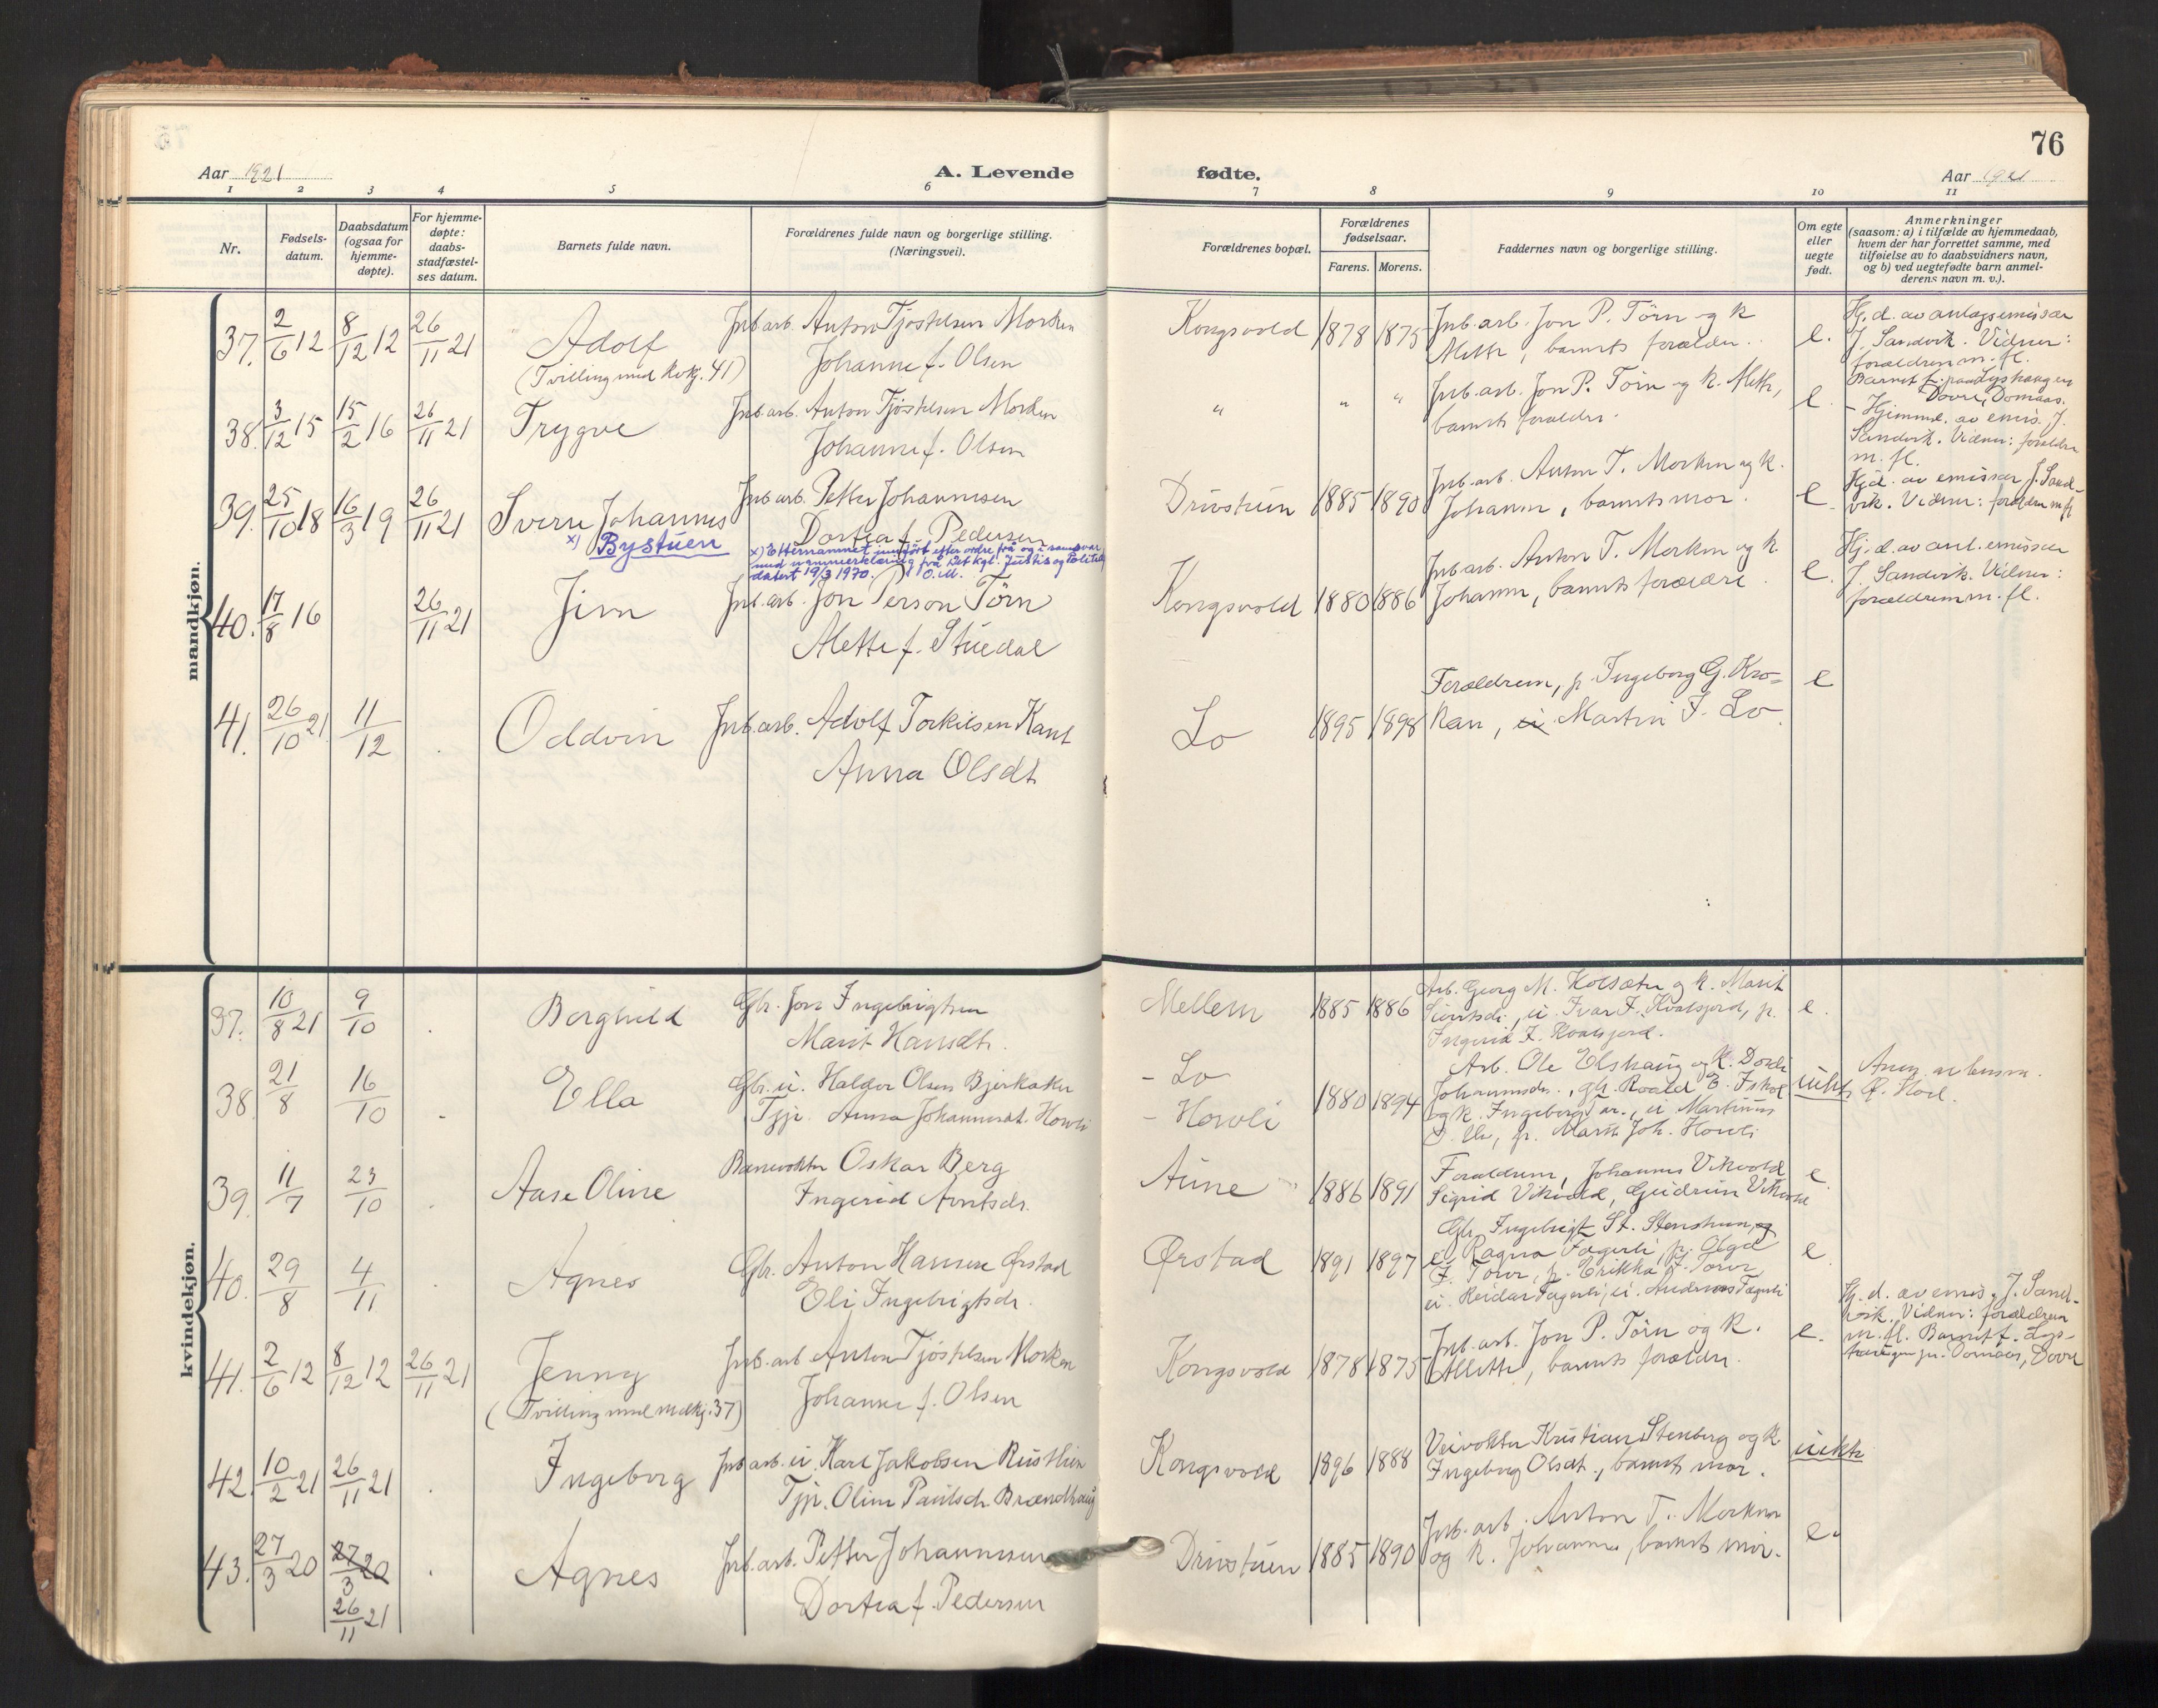 76
Aar 1921
A. Levende
fødte.
Aar 1921
1 2 3 4 5 6 7 8 9 10 11
Nr.
Fødsels-
datum.
Daabsdatum
(ogsaa for
hjemme-
døpte).
For hjemme-
døpte:
daabs-
stadfæstel-
ses datum.
Barnets fulde navn.
Forældrenes fulde navn og borgerlige stilling.
(Næringsvei).
Forældrenes bopæl.
Forældrenes
fødselsaar.
Farens. Morens.
Faddernes navn og borgerlige stilling.
Om egte
eller
uegte
født.
Anmerkninger
(saasom: a) i tilfælde av hjemmedaab,
hvem der har forrettet samme, med
tilføielse av to daabsvidners navn,
og b) ved uegtefødte barn anmel-
derens navn m. v.).
mandkjøn.
37. 2/6 12 8/12 12 26/11 21 Adolf
(Tvilling med kvkj. 41)
Jnb.arb. Anton Tjøstelsen Morken
Johanne f. Olsen
Kongsvold 1878 1875
Jnb. arb. Jon P. Törn og k
Alette, barnets forældre.
e.
Hj. d. av anlægsemissær
J. Sandvik. Vidner:
forældrene m. fl.
Barnet f. paa Lyshaugen
Dovre, Domaas.
38. 3/12 15 15/2 16 26/11 21 Trygve
Jnb.arb. Anton Tjøstelsen Morken
Johanne f. Olsen
" " "
Jnb. arb. Jon P. Törn og k. Alette,
barnets forældre.
e.
- Hjemmed. av emis. J.
Sandvik. Vidner: forældre
m. fl.
39. 25/10 18 16/3 19 26/11 21 Sverre Johannes
x) Bystuen
Jnb arb. Petter Johannesen
Dortea f. Pedersen
x) Etternamnet innført etter ordre frå og i samsvar
med namneerklæring frå Det kgl. Justis og Politid.
datert 19/3 1970. O.M.
Drivstuen 1885 1890
Jnb. arb. Anton T. Morken og k.
Johanne, barnets mor.
e
Hj.d. av emissær J. Sand-
vik. Vidner: forældre m fl
40. 17/8 16 26/11 21 Jim
Jnb. arb. Jon Person Törn
Alette f. Stuedal
Kongsvold 1880 1886
Jnb. arb. Anton T. Morken og k.
Johanne, barnets forældre.
e.
Hj. d. av anl. emissær
J. Sandvik. Vidner:
forældrene m. fl.
41. 26/10 21 11/12 Oddvin
Jnb. arb. Adolf Torkilsen Kant
Anna Olsdt
Lo 1895 1898
Forældrene, p. Ingeborg G. Kro=
kan, u. Martin J. Lo.
e
kvindekjøn.
37. 10/8 21 9/10 Borghild
Gbr. Jon Ingebrigtsen
Marit Hansdt.
Mellem 1885 1886
Arb. Georg M. Kolsæter og k. Marit
Sivertsdt., u. Ivar F. Kvalsjord, p.
Ingerid F. Kvalsjord.
e.
38. 21/8 16/10 Ella
Gbr. u. Haldor Olsen Bjerkaker
Tjp. Anna Johannesdt. Hovli
- Lo
- Hovli
1880 1894
Arb. Ole Elshaug og k. Dordi
Johannesdr., gbr. Roald E.
og k. Ingeborg u. Martinus
p. Marit Joh. Hovli
uekte
39. 11/7 23/10 Aase Oline
Banevokter Oskar Berg
Ingerid Arntsdr.
Aune 1886 1891
Forældrene, Johannes Vikvold
Sigrid Vikvold, Gudrun Vikvold
e.
40. 29/8 4/11 Agnes
Gbr. Anton Hansen Ørstad
Eli Ingebrigtsdr.
Ørstad 1891 1897
Gbr. Ingebrigt St. Stenshum, og
Ragna Fagerli, p. Olga
F. Torve, p. Erikka F. Torve
u. Reidar Fagerli, u. Andreas Fagerli
e
41. 2/6 12 8/12 12 26/11 21 Jenny
(Tvilling med mdkj. 37)
Jnb. arb Anton Tjøstelsen Morken
Johanne f. Olsen
Kongsvold 1878 1875
Jnb. arb. Jon P. Törn og k.
Alette, barnets forældre.
e.
Hj. d. av emis. J. Sand-
vik. Vidner: forældrene
m. fl. Barnet f. Lys-
haugen pr. Domaas, Dovre
42. 10/2 21 26/11 21 Ingeborg
Jnb arb. u. Karl Jakobsen Rustlien
Tjp. Oline Paulsdr. Brændhaug
Kongsvold 1896 1888
Veivokter Kristian Stenberg og k
Ingeborg Olsdt., barnets mor.
uekte
43. 27/3 20 27/3 20 Agnes
26/11 21
Jnb. arb. Petter Johannessen
Dortea f. Pedersen
Drivstuen 1885 1890
Jnb. arb. Anton T. Morken
og k. Johanne, barnets mor.
e.